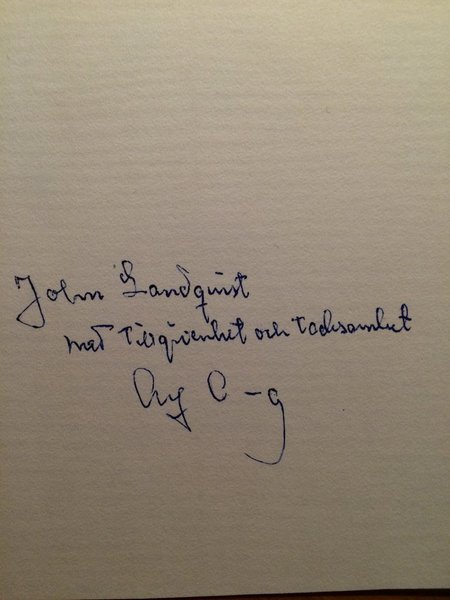 John Landquist
med tillgivenhet och tacksamhet
C-g